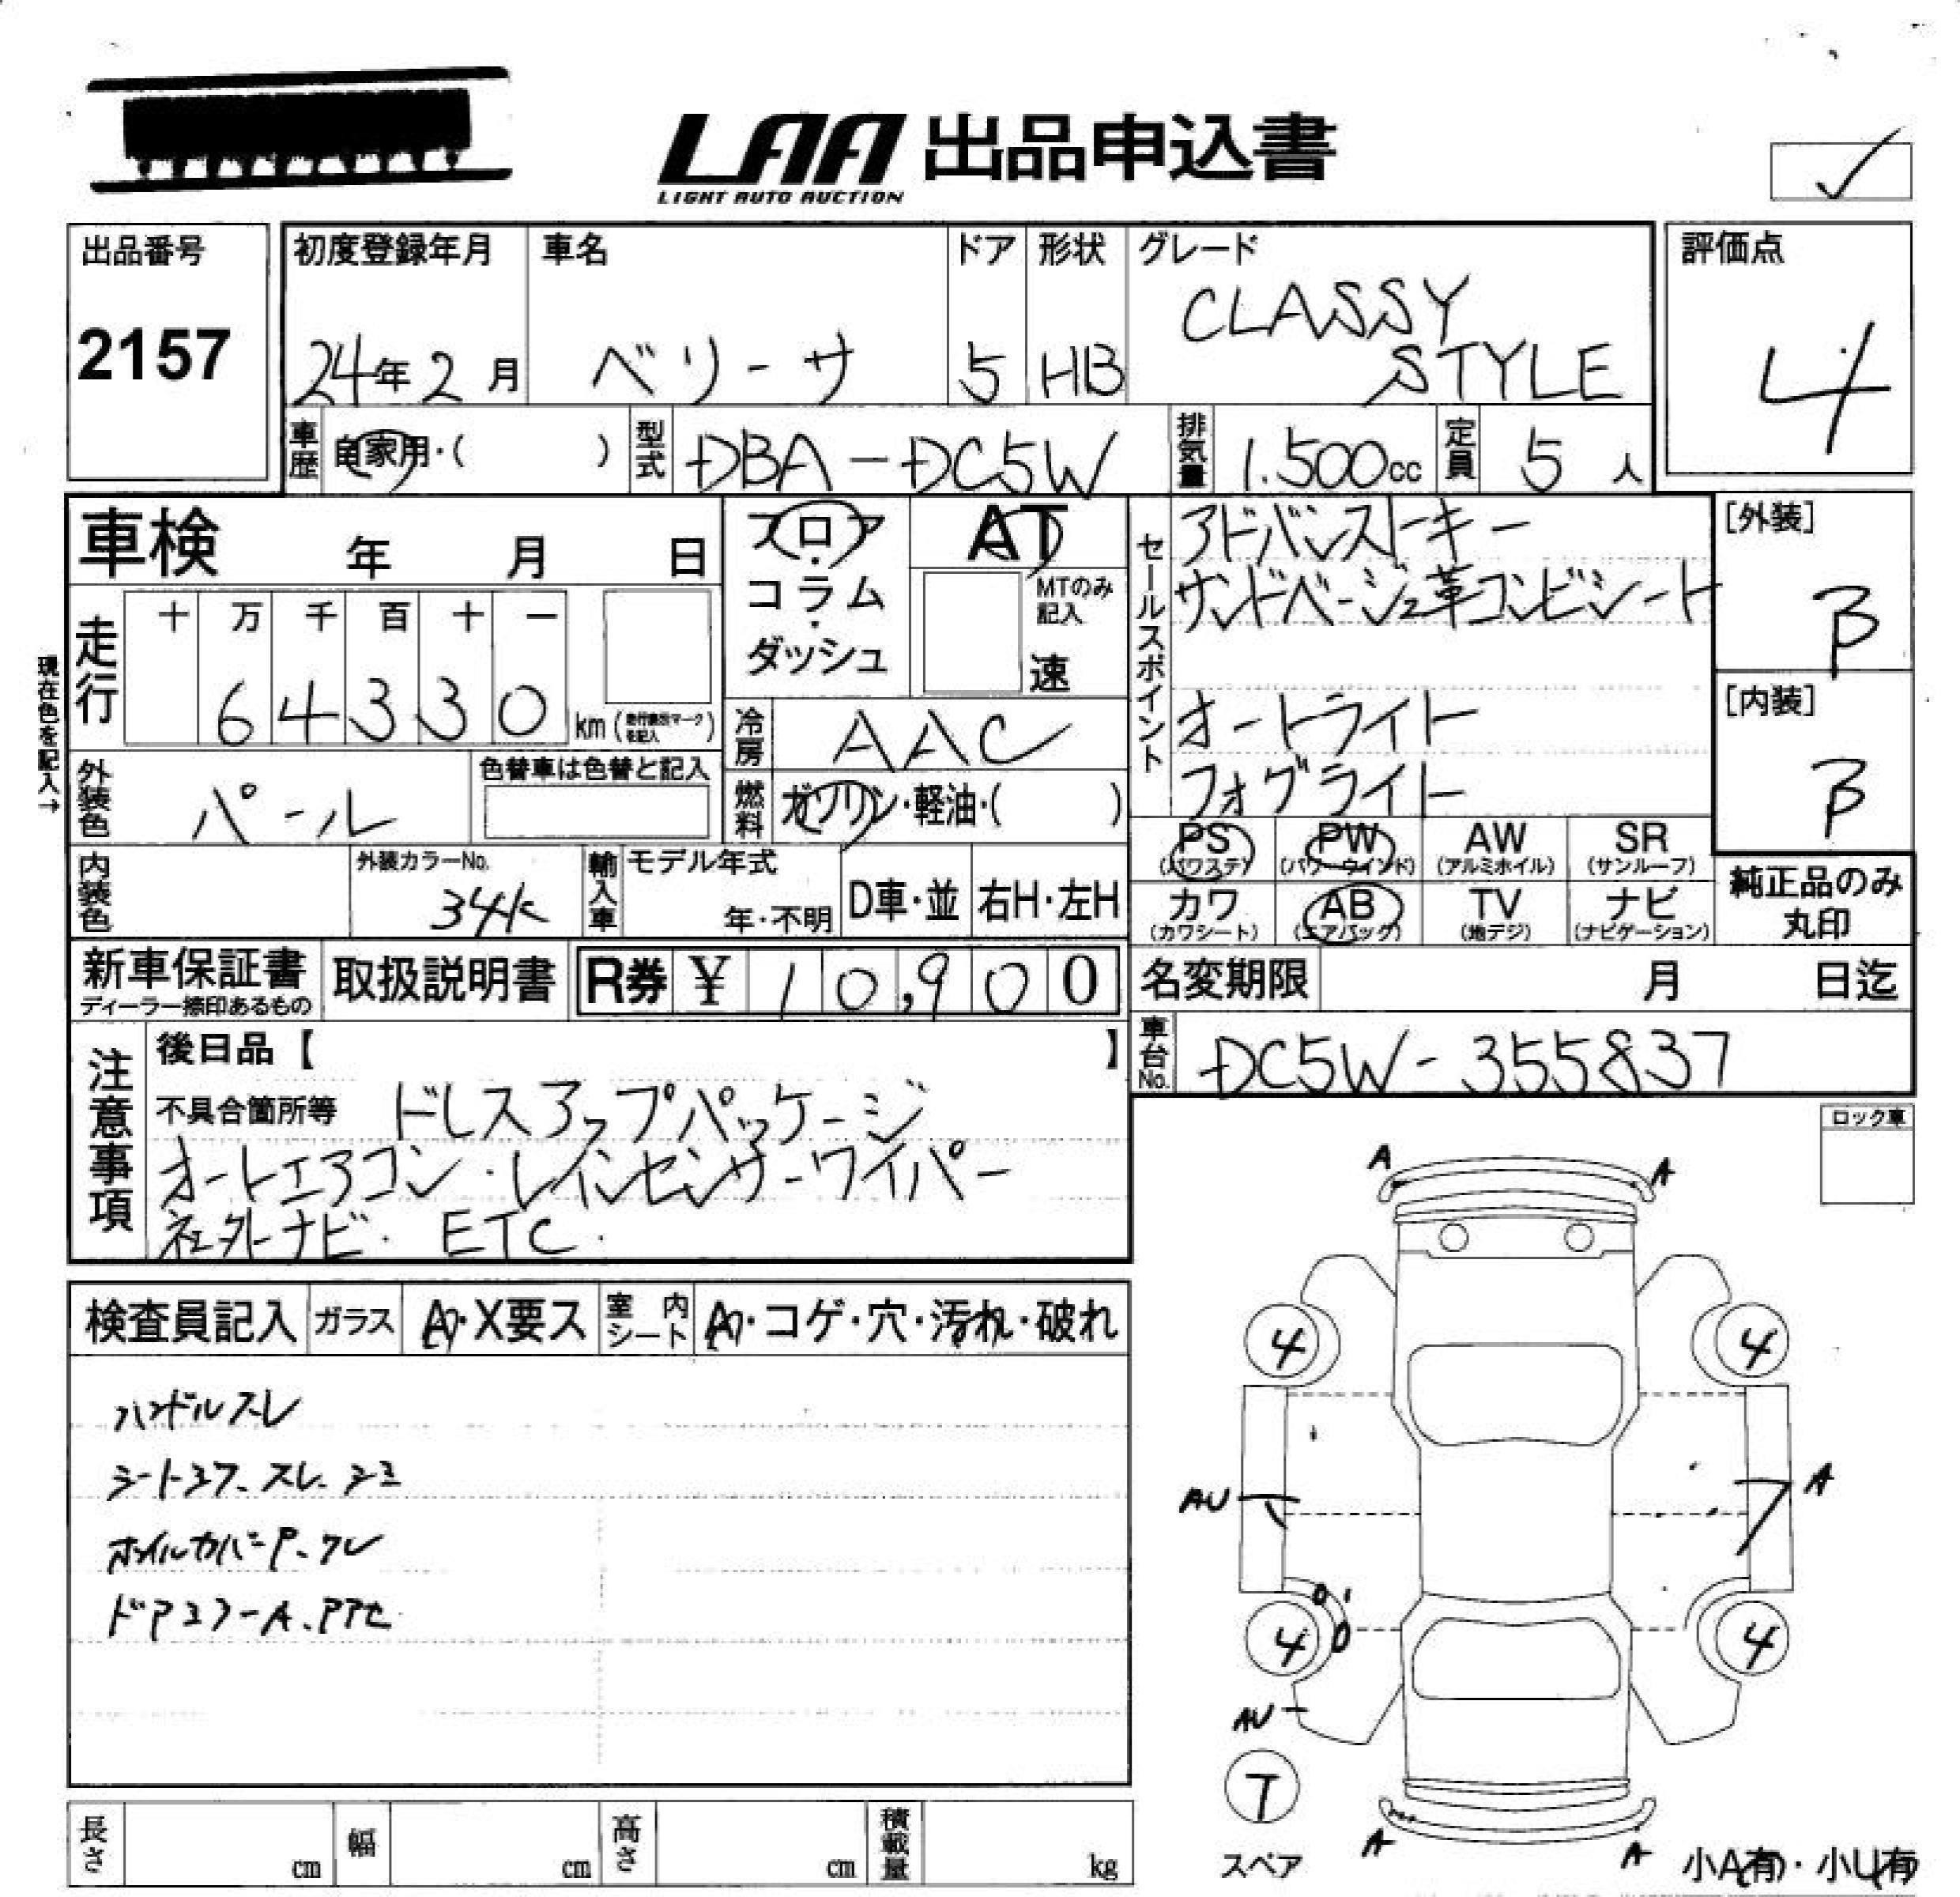 LAA 出品申込書
LIGHT AUTO AUCTION
出品番号
2157
初度登録年月
24年2月
車名
ベリーサ
ドア
5
形状
HB
グレード
CLASSY
STYLE
評価点
4
車歴
自家用・( )
型式
DBA-DC5W
排気量
1.500cc
定員
5人
車検 年 月 日
フロア・
コラム・
ダッシュ
AT
MTのみ
記入
速
セールスポイント
アドバンストキー
サンドベージュ革コンビシート
オートライト
フォグライト
[外装]
B
[内装]
B
現在色を記入→
走行
十 万 千 百 十 一
6 4 3 3 0
km(走行表示マークを記入)
冷房
AAC
外装色
パール
色替車は色替と記入
燃料
ガソリン・軽油・( )
PS
(パワステ)
PW
(パワーウインド)
AW
(アルミホイル)
SR
(サンルーフ)
内装色
外装カラーNo.
34K
輸入車
モデル年式
年・不明
D車・並
右H・左H
カワ
(カワシート)
AB
(エアバッグ)
TV
(地デジ)
ナビ
(ナビゲーション)
純正品のみ
丸印
新車保証書
ディーラー捺印あるもの
取扱説明書
R券 ¥ 10,900
名変期限 月 日迄
車台No.
DC5W-355837
注意事項
後日品【 】
不具合箇所等 ドレスアップパッケージ
オートエアコン・レインセンサーワイパー
社外ナビ・ETC.
ロック車
検査員記入
ガラス
A・X要ス
室内シート
A・コゲ・穴・汚れ・破れ
ハンドルスレ
シートコゲ、スレ、シミ
ホイルカバーP、ワレ
ドアミラーA、Pアセ
A
A
4
4
AU
A
4
4
AU
T
スペア
A
A
小A有・小U有
長さ cm
幅 cm
高さ cm
積載量 kg